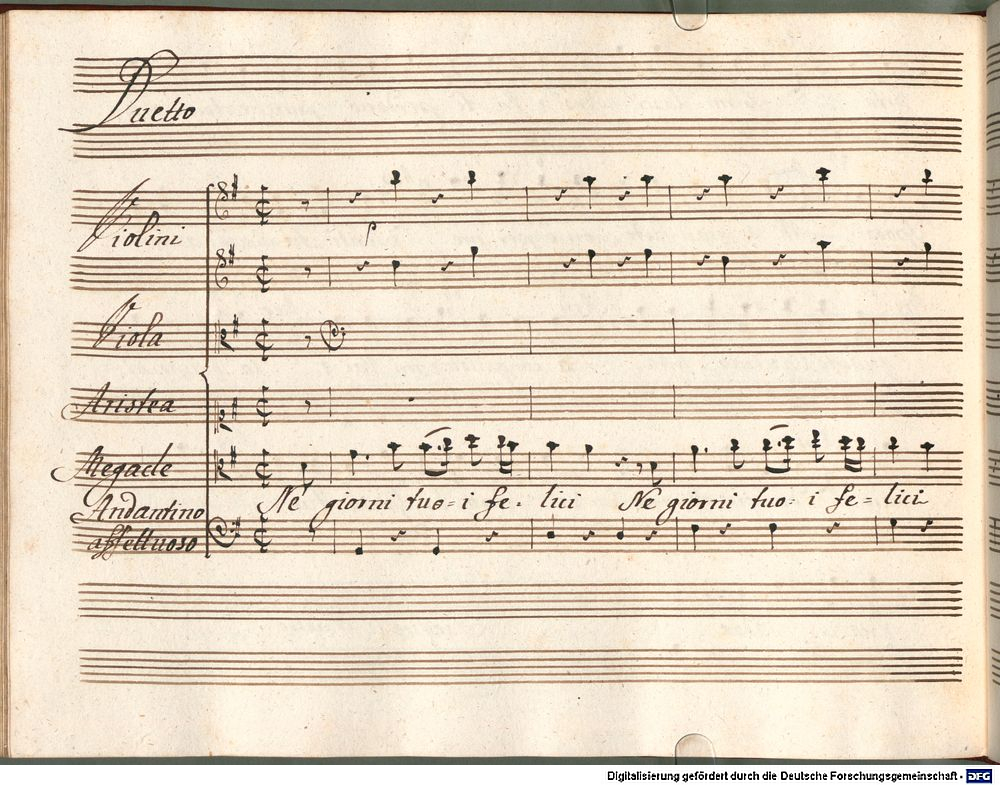 Duetto
Violini
p
Viola
Aristea
Megacle
Nè giorni tuo-i fe-lici Nè giorni tuo-i fe-lici
Andantino
affettuoso
Digitalisierung gefördert durch die Deutsche Forschungsgemeinschaft - DFG